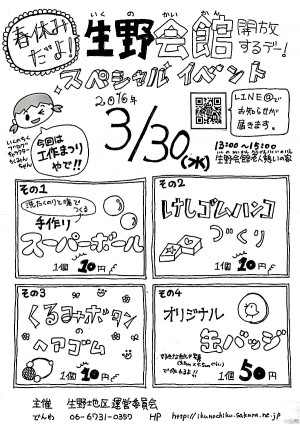 春休みだよ!
いくのかいかん
生野会館
開放するデー!
スペシャルイベント
2016年
3/30(水)
LINE@でお知らせが届きます。
13:00〜15:00
生野会館老人憩いの家
今回は工作まつりやで!!
その1
洗たくのりと塩でつくる
手作り
スーパーボール
1個 10円
その2
けしゴムハンコ
づくり
1個 10円
その3
くるみボタン
の
ヘアゴム
1個 10円
その4
オリジナル
缶バッジ
1個 50円
主催 生野地区運営委員会
でんわ 06-6731-0357 HP http://ikunochiku.sakura.ne.jp